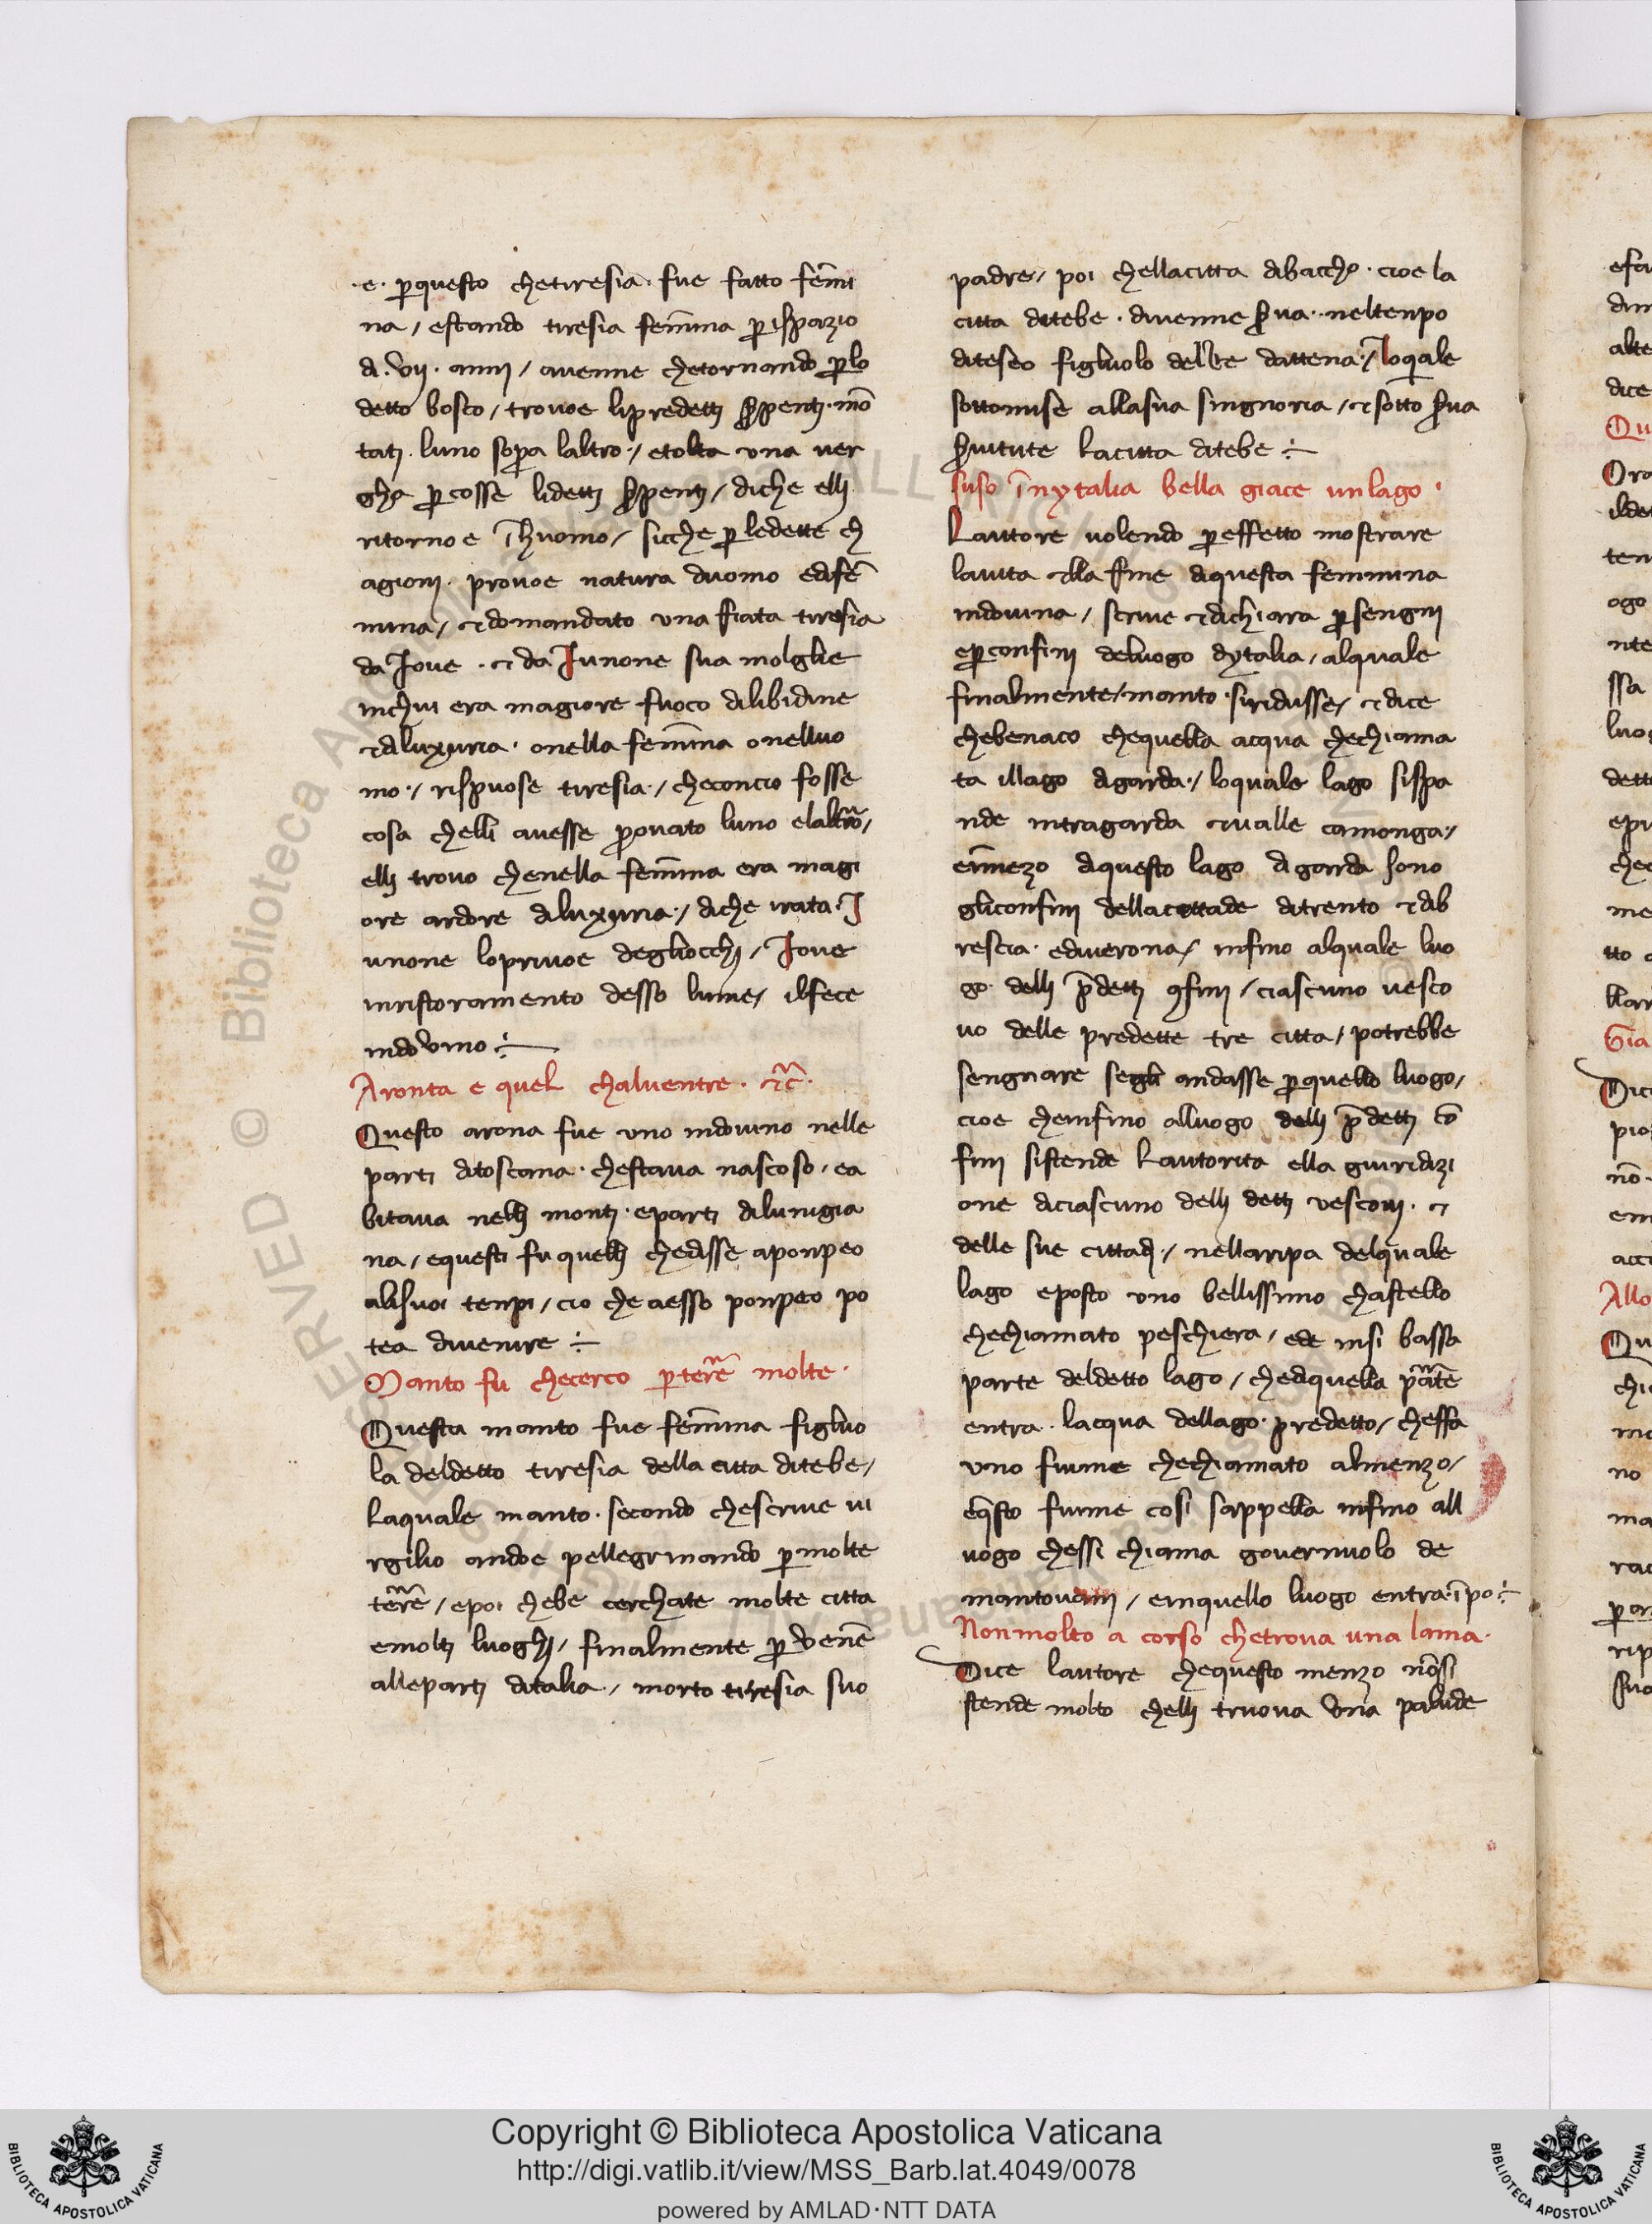 .e. ꝑquesto chetiresia. fue fatto fe̅mi
na / estando tiresia fem̅ina ꝑ ispazio
di .vij. anni / auenne chetornando ꝑlo
detto bosco / trouoe lipredetti s̱penti. mo̅
tati. luno sop̱a laltro / etolta una uer
gha ꝑcosse lidetti s̱penti / diche elli
ritornoe i̅huomo / sicche ꝑ ledette ch
agioni. prouoe natura duomo edife̅
mina / ⁊domandato una fiata tiresia
da Joue . ⁊ da Junone sua molglie
inchui era magiore fuoco dilibidine
⁊diluxuria. onella fem̅ina onelluo
mo / rispuose tiresia / checoncio fosse
cosa chelli auesse ꝓuato luno elaltro /
elli trouo chenella fem̅ina era magi
ore ardore diluxuria / diche irata. J
unone lopriuoe degliocchi / Joue
inristoramento desso lume / ilfece
indouino ÷
Aronta e quel chaluentre . ⁊c̅.
Questo arona fue uno indouino nelle
parti ditoscana. chestaua nascoso. ea
bitaua nelli monti. eparti dilunigia
na / equesti fu quelli chedisse aponpeo
alisuoi tenpi / cio che aesso ponpeo po
tea diuenire ÷
Manto fu checerco ꝑ ter̅e molte.
Questa manto fue fem̅ina figluo
la deldetto tiresia della citta ditebe /
laquale manto. secondo chescriue ui
rgilio andoe pellegrinando ꝑ molte
ter̅e / epoi chebe cerchate molte citta
emolti luoghi / finalmente ꝑuene̅
alleparti ditalia / morto tiresia suo
padre / poi chellacitta dibaccho. cioe la
citta ditebe . diuenne s̱ua. neltenpo
diteseo figluolo delre dattena / loquale
sottomise allasua singnoria / ⁊sotto s̱ua
s̱uitute lacitta ditebe ÷
suso i̅nytalia bella giace un lago .
Lauttore uolendo ꝑ effetto mostrare
lauita ⁊lla fine diquesta femmina
indouina / scriue ⁊dichiara ꝑ sengni
eꝑconfini deluogo dytalia / alquale
finalmente / manto . siridusse / ⁊dice
chebenaco chequella acqua chechiama
ta illago digarda / loquale lago sispa
nde intragarda ⁊ualle camonga /
ei̅mezo diquesto lago digarda sono
gliconfini dellacittade ditrento ⁊dib
rescia. ediuerona / infino alquale luo
go. delli p̅detti ꝯfini / ciascuno uesco
uo delle predette tre citta / potrebbe
sengnare segli andasse ꝑ quello luogo /
cioe cheinfino alluogo delli p̅detti co̅
fini sistende lautorita ella guiridizi
one diciascuno delli detti uescoui. ⁊
delle sue cittadi / nellaripa delquale
lago eposto uno bellissimo chastello
chechiamato peschiera / ede insi bassa
parte deldetto lago / chediquella pa̅te
entra. lacqua dellago. predetto / cheffa
uno fiume chechiamato almenzo /
eq̅sto fiume cosi sappella infino all
uogo chessi chiama gouernuolo de
mantouani / einquello luogo entra. i̅po ÷
Non molto a corso chetroua una lama.
Dice lautore chequesto menzo no̅si
stende molto chelli truoua una palude
Copyright © Biblioteca Apostolica Vaticana
http://digi.vatlib.it/view/MSS_Barb.lat.4049/0078
powered by AMLAD·NTT DATA
BIBLIOTECA APOSTOLICA VATICANA
BIBLIOTECA APOSTOLICA VATICANA